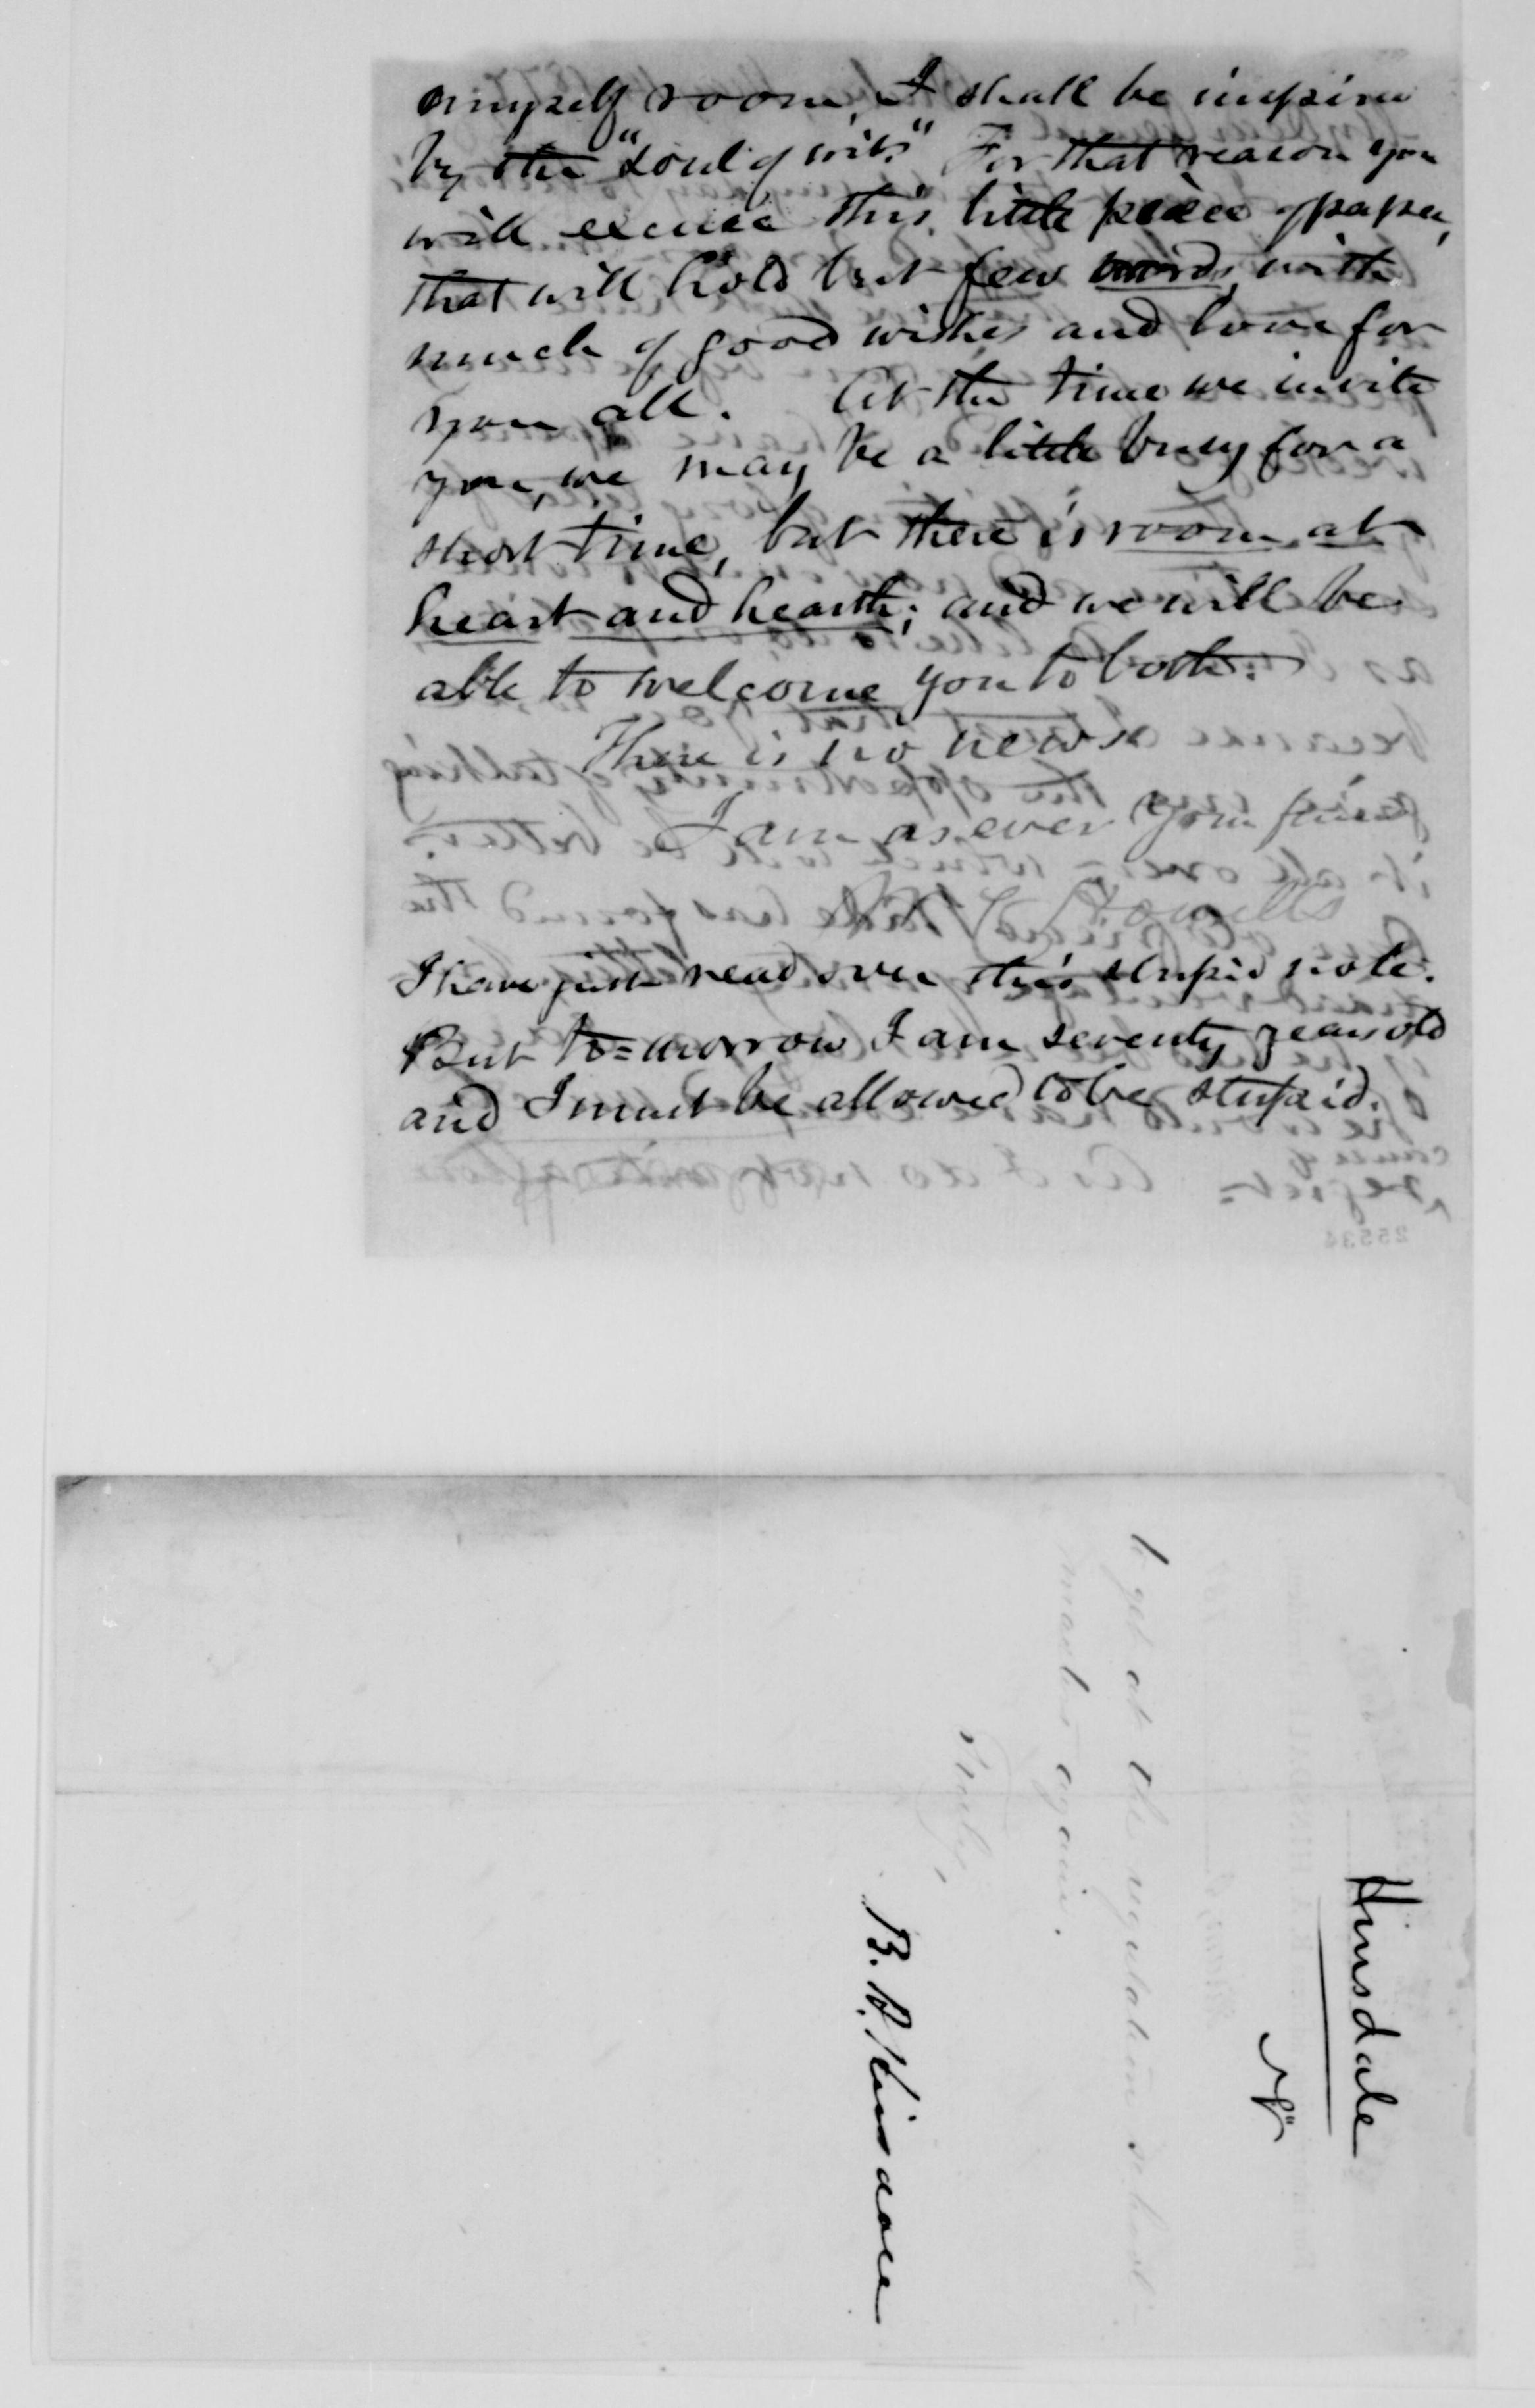 or myself room, I shall be inspired
by the "soul of wit." For that reason you
will excuse this little piece of paper,
that will hold but few words, with
much of good wishes and love for
you all. At the time we invite
you, we may be a little busy for a
short time, but there is room at
heart and hearth; and we will be
able to welcome you to both.
There is no news.
I am as ever your friend
Wm C Howells
I have just read over this stupid note.
But to=morrow I am seventy years old
and I must be allowed to be stupid.
Hinsdale
B. A. Hinsdale